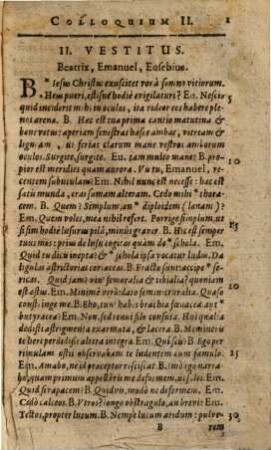 COLLOQUIUM II. 1
II. VESTITUS.
Beatrix, Emanuel, Eusebius.
B. Iesus Christus exuscitet vos à somno vitiorum.
Hem pueri, estisne hodie evigilaturi? Eu. Nescio 5
quid inciderit mihi in oculos, ita videor eos habere ple-
nos arena. B. Hæc est tua prima cantio matutina &
benè vetus: aperiam fenestras hasce ambas, vitream &
ligneam, ut feriat clarum mane vestros amborum
oculos. Surgite, surgite. Eu. tam multo mane? B. pro- 10
pior est meridies quam aurora. Vu tu, Emanuel, re-
centem subuculam? Em. Nihil nunc est necesse: hæc est
satis munda, cras sumam alteram. Cedo mihi thora-
cem. B. Quem? Simplum, an diploidem (lanam)?
Em. Quem voles, mea nihil refert. Porrige simplum, ut
si sim hodie lusurus pilâ, minus graver. B. Hic est semper
tuus mos: prius de lusu cogitas quàm de schola. Em.
Quid tu dicis inepta? & schola ipsa vocatur ludus. Da
ligulas astrictorias coriaceas. B. Fractæ sunt: accipe seri-
ceas. Quid jam? vin femoralia & tibialia? quoniam 20
est æstus. Em. Minimè verò: da feminicruralia. Quæ-
so constringe me. B. Eho, tun' habes brachia fœnacea, aut
butyracea? Em. Non, sed filo sunt consuta. Hoi qualia
dedisti astrigmenta exarmata, & lacera. B. Memineris
te heri perdidisse altera integra. Em. Qui scis? B. Ego per
rimulam ostii observabam te ludentem cum famulo. 25
Em. Amabo, ne id præceptor resciscat. B. imò ego narra-
bo, quam primum appellaris me deformem, uti soles. Em.
Quid si rapacem? B. Quidvis, modo ne deformem. Em.
Cedo calceos. B. Utros? longo obstragulo, an brevi? Em.
Tectos, propter lutum. B. Nempe lutum aridum: pulve- 30
B rem